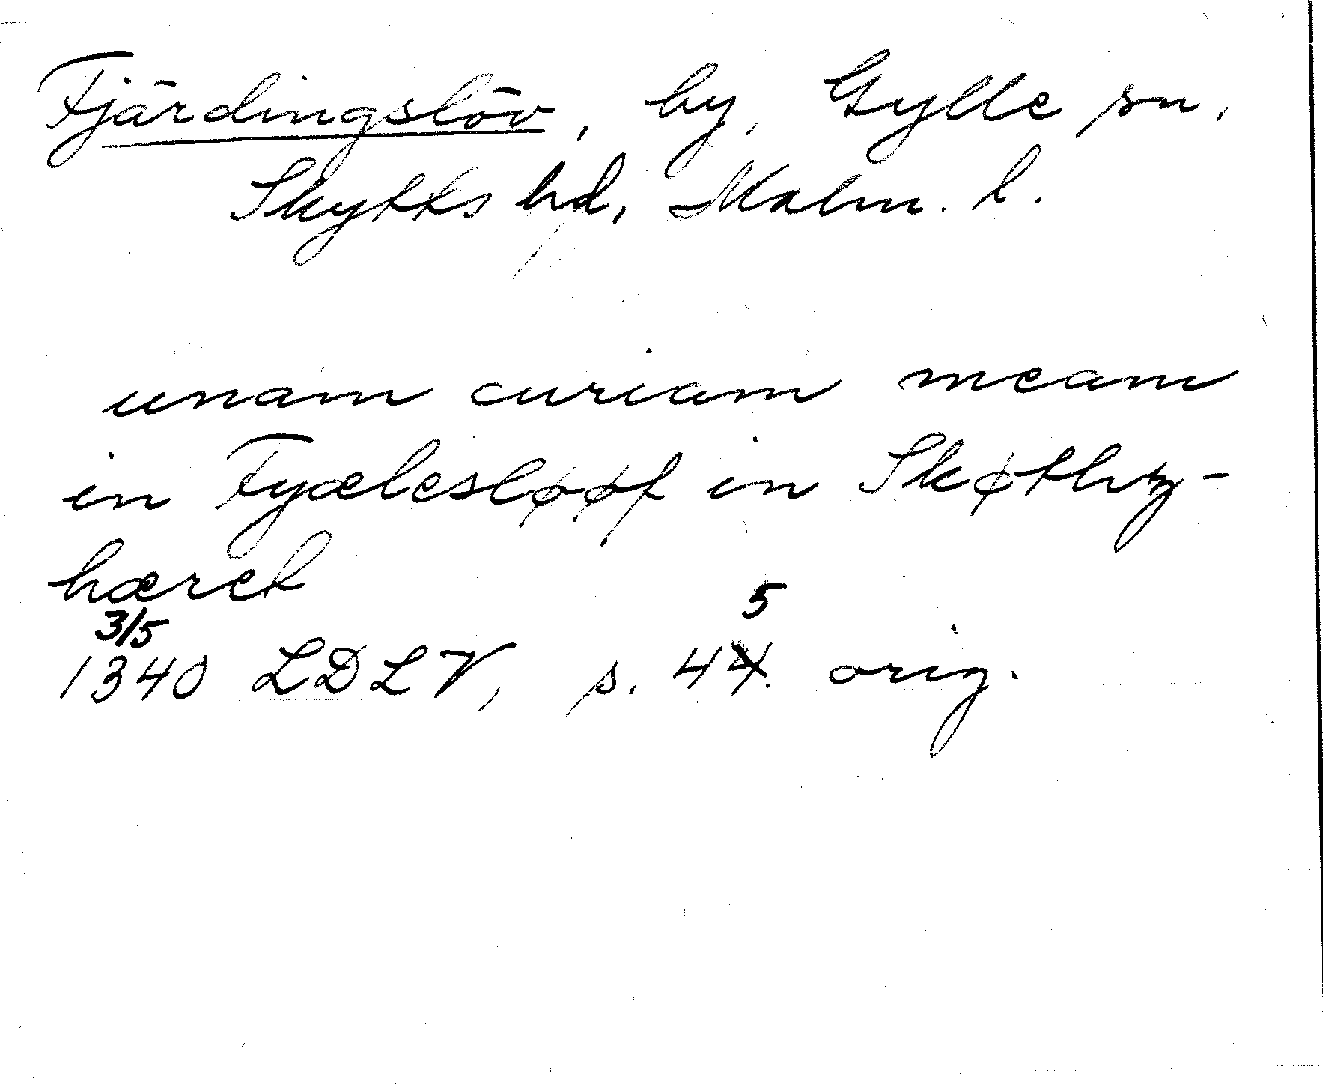 Fjärdingslöv, by, Gylle sn,
Skytts hd, Malm. l.
unam curiam meam
in Fyælesløøf in Skøthz-
hæret
3/5 5
1340 LDLV, s. 44. orig.